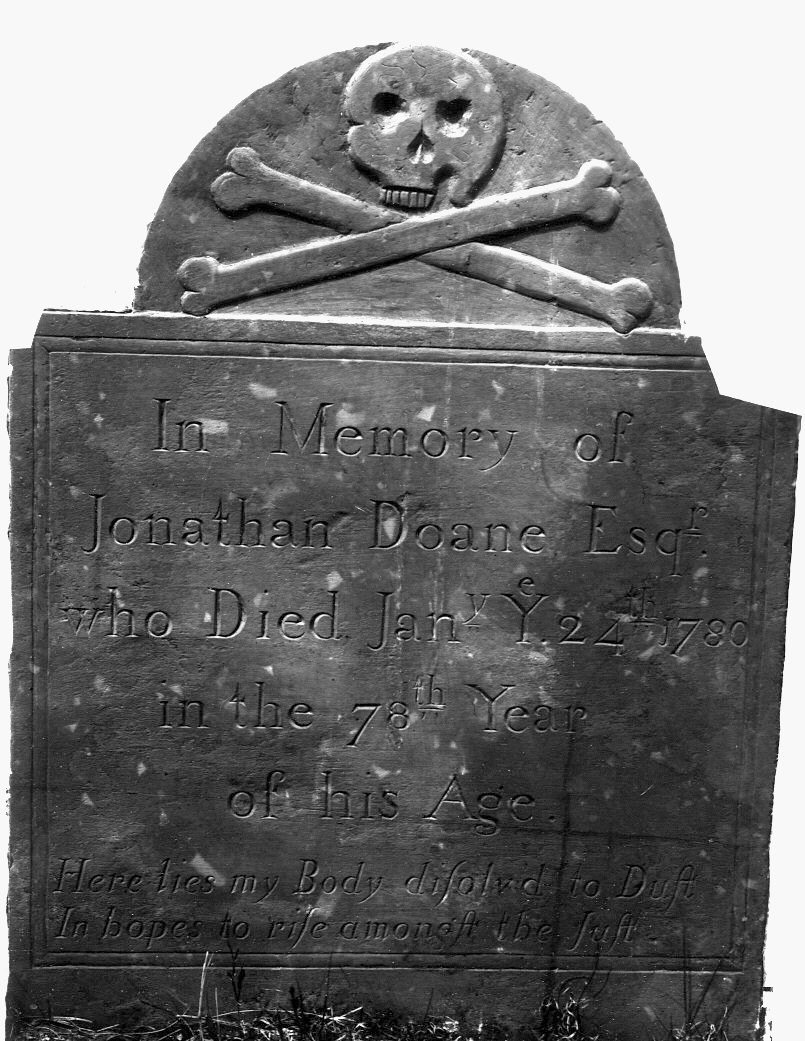 In Memory of
Jonathan Doane Esqr.
who Died Jany Ye 24th 1780
in the 78th Year
of his Age.
Here lies my Body diſolv'd to Duſt
In hopes to riſe amongſt the Juſt.